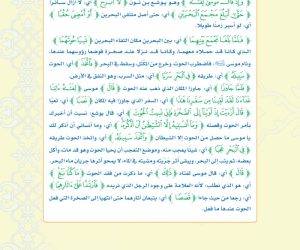 ﴿ وَإِذْ قَالَ مُوسَىٰ لِفَتَىٰهُ ﴾ وهو يوشع بن نون ﴿ لَآ أَبْرَحُ ﴾ أي: لا أزال سائرا
﴿ حَتَّىٰٓ أَبْلُغَ مَجْمَعَ ٱلْبَحْرَيْنِ ﴾ أي: حتى أصل ملتقى البحرين ﴿ أَوْ أَمْضِىَ حُقُبًا ﴾
أي: أو أسير زمنا طويلا.
﴿ فَلَمَّا بَلَغَا مَجْمَعَ بَيْنِهِمَا ﴾ أي: بين البحرين مكان التقاء البحرين ﴿ نَسِيَا حُوتَهُمَا ﴾
الذي كانا قد حملاه معهما، وكانا قد نزلا عند صخرة فوضعا رؤسهما عندها،
ونام موسى، فاضطرب الحوت وخرج من المكتل وسقط في البحر ﴿ فَٱتَّخَذَ ﴾ أي: الحوت
﴿ سَبِيلَهُۥ ﴾ أي: طريقه ﴿ فِى ٱلْبَحْرِ سَرَبًا ﴾ أي: مثل السرب، وهو النفق في الأرض.
﴿ فَلَمَّا جَاوَزَا ﴾ أي: جاوزا المكان الذي ذهب عنه الحوت ﴿ قَالَ ﴾ موسى ﴿ لِفَتَىٰهُ
ءَاتِنَا غَدَآءَنَا لَقَدْ لَقِينَا مِن سَفَرِنَا هَٰذَا ﴾ أي: السفر الذي جاوزا فيه المكان ﴿ نَصَبًا ﴾ أي: تعبا
﴿ قَالَ أَرَءَيْتَ إِذْ أَوَيْنَآ إِلَى ٱلصَّخْرَةِ فَإِنِّى نَسِيتُ ٱلْحُوتَ ﴾ أي: قال يوشع: نسيت أن أخبرك
بأمر الحوت وقصته ﴿ وَمَآ أَنسَىٰنِيهُ إِلَّا ٱلشَّيْطَٰنُ أَنْ أَذْكُرَهُۥ ﴾ أي: وما أنساني أن أذكر لك
يا موسى ما حصل من الحوت إلا الشيطان ﴿ وَٱتَّخَذَ سَبِيلَهُۥ ﴾ أي: واتخذ الحوت طريقه
﴿ فِى ٱلْبَحْرِ عَجَبًا ﴾ أي: شيئا يعجب منه، وموضع التعجب أن يحيا الحوت وهو قد مات، وأكل
بعضه، ثم يثب إلى البحر، ويبقى أثر جريته ومشيته في الماء، لا يمحو أثرها جريان ماء البحر.
﴿ قَالَ ﴾ أي: قال موسى لفتاه ﴿ ذَٰلِكَ ﴾ أي: ما ذكرت من فقد الحوت ﴿ مَا كُنَّا نَبْغِ ﴾
أي: هو الذي نطلب، لأنه العلامة على وجود الرجل الذي نريده ﴿ فَٱرْتَدَّا عَلَىٰٓ ءَاثَارِهِمَا ﴾
أي: رجعا من حيث جاءا ﴿ قَصَصًا ﴾ أي: يتبعان آثارهما حتى انتهيا إلى الصخرة التي فعل
الحوت عندها ما فعل.